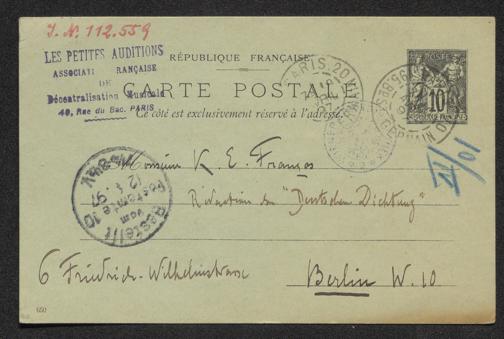 J. N. 112.559
LES PETITES AUDITIONS
ASSOCIATI RANÇAISE
DE
Décentralisation Musicale
40, Rue du Bac. PARIS
RÉPUBLIQUE FRANÇAISE
CARTE POSTALE
Ce côté est exclusivement réservé à l'adresse.
PARIS. 20
POSTE
10
Monsieur K. E. Franzos
Rédaction der "Deutschen Dichtung"
6 Friedrich-Wilhelmstrasse
Berlin W. 10
Bestellt
vom
Postamte 10
12 4 97
IV/01
650